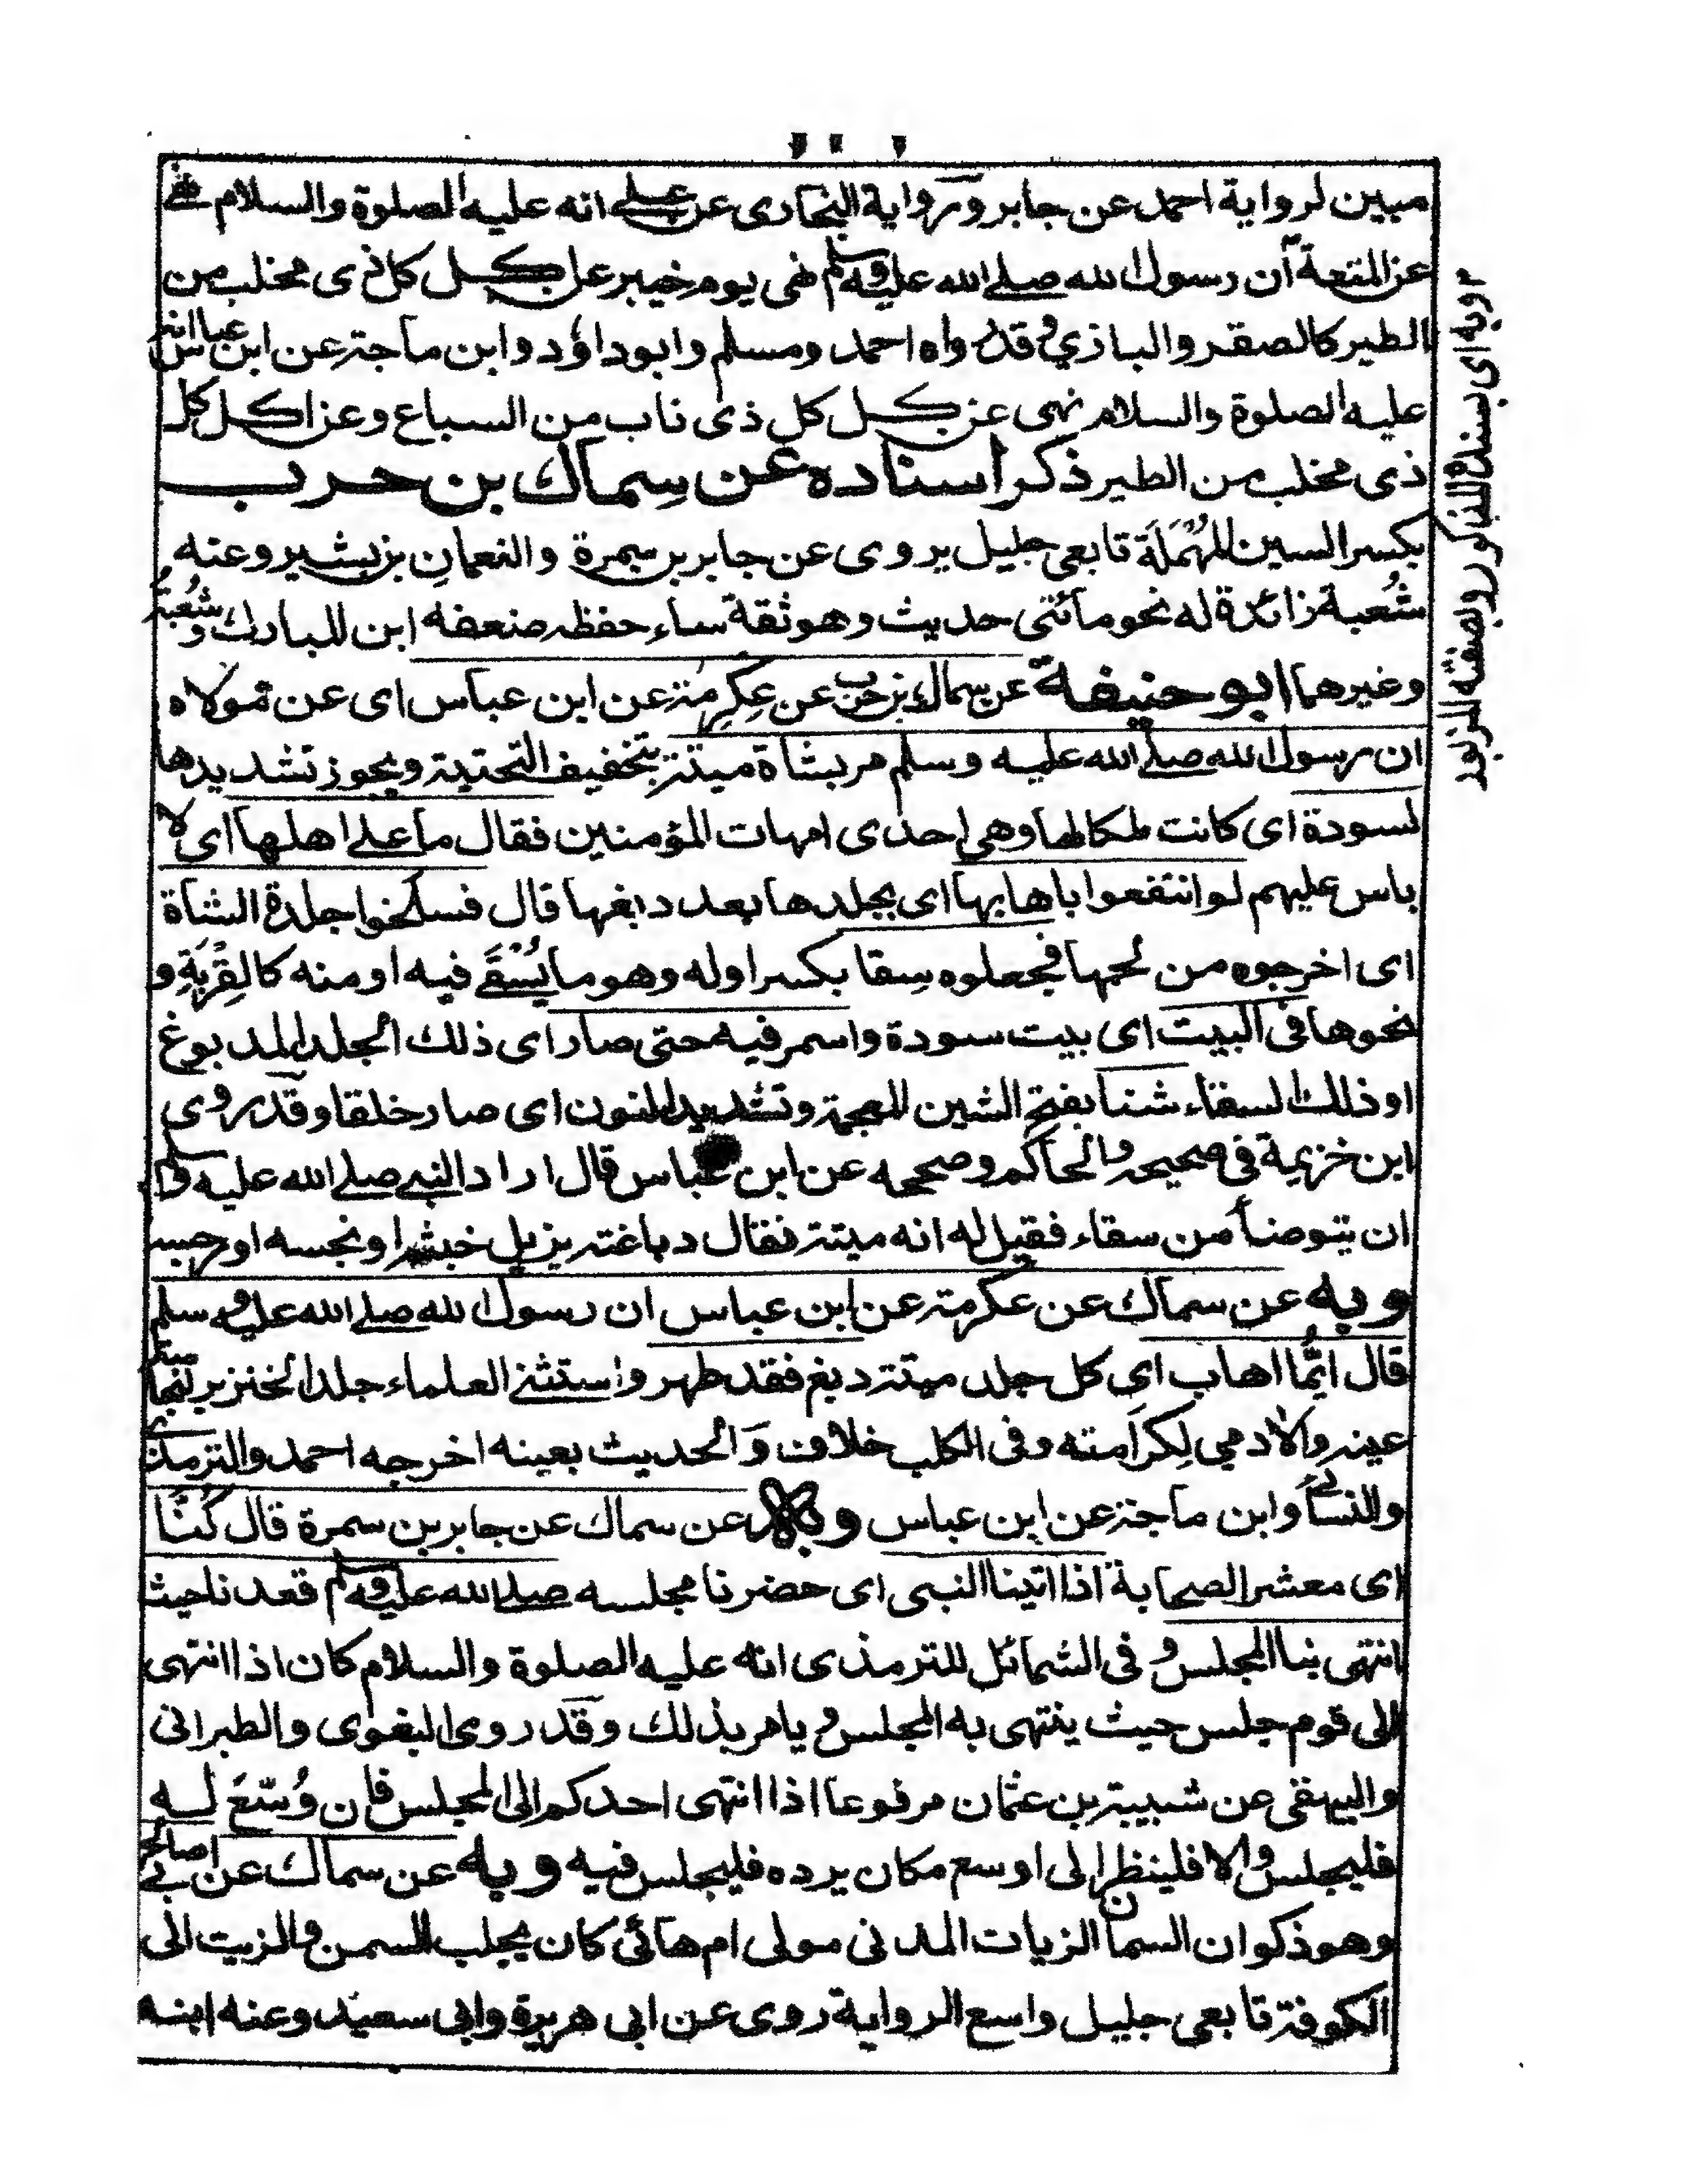 مبين لرواية احمد عن جابر ورواية البخارى عن على انه عليه الصلوة والسلام نهى
عن المتعة ان رسول الله صلى الله عليه وسلم نهى يوم خيبر عن اكل كل ذى مخلب من
الطير كالصقر والبازي وقد رواه احمد ومسلم وابوداؤد وابن ماجة عن ابن عباس انه
عليه الصلوة والسلام نهى عن اكل كل ذى ناب من السباع وعن اكل كل
ذى مخلب من الطير ذكر اسناده عن سماك بن حرب
بكسر السين المهملة تابعى جليل يروى عن جابر بن سمرة والنعمان بن بشير وعنه
شعبة زائدة له نحو مائتى حديث وهو ثقة ساء حفظه ضعفه ابن المبارك وشعبة
وغيرهما ابو حنيفة عن سماك بن حرب عن عكرمة عن ابن عباس اى عن مولاه
ان رسول الله صلى الله عليه وسلم مر بشاة ميتة بتخفيف التحتية ويجوز تشديدها
لسودة اى كانت ملكا لها وهى احدى امهات المؤمنين فقال ما على اهلها اى لا
باس عليهم لو انتفعوا باهابها اى بجلدها بعد دبغها قال فسلخوا جلدة الشاة
اى اخرجوه من لحمها فجعلوه سقا بكسر اوله وهو ما يسقى فيه او منه كالقربة و
نحوها فى البيت اى بيت سودة واسمر فيه حتى صار اى ذلك الجلد المدبوغ
او ذلك السقاء شنا بفتح الشين المعجمة وتشديد النون اى صار خلقا وقد روى
ابن خزيمة فى صحيحه والحاكم وصححه عن ابن عباس قال اراد النبى صلى الله عليه وسلم
ان يتوضأ من سقاء فقيل له انه ميتة فقال دباغته يزيل خبثه او نجسه او رجسه
وبه عن سماك عن عكرمة عن ابن عباس ان رسول الله صلى الله عليه وسلم
قال ايما اهاب اى كل جلد ميتة دبغ فقد طهر واستثنى العلماء جلد الخنزير لنجاسة
عينه والادمي لكرامته وفى الكلب خلاف والحديث بعينه اخرجه احمد والترمذى
والنسائى وابن ماجة عن ابن عباس وبه عن سماك عن جابر بن سمرة قال كنا
اى معشر الصحابة اذا اتينا النبى اى حضرنا مجلسه صلى الله عليه وسلم قعدنا حيث
انتهى بنا المجلس وفى الشمائل للترمذى انه عليه الصلوة والسلام كان اذا انتهى
الى قوم جلس حيث ينتهى به المجلس ويامر بذلك وقد روى البغوى والطبرانى
والبيهقى عن شيبة بن عثمان مرفوعا اذا انتهى احدكم الى المجلس فان وسع له
فليجلس والا فلينظر الى اوسع مكان يرده فليجلس فيه وبه عن سماك عن ابى صالح
وهو ذكوان السمان الزيات المدنى مولى ام هائئ كان يجلب السمن والزيت الى
الكوفة تابعى جليل واسع الرواية روى عن ابى هريرة وابى سعيد وعنه ابنه
وبه اى بسنده المذكور وصفته المزبور